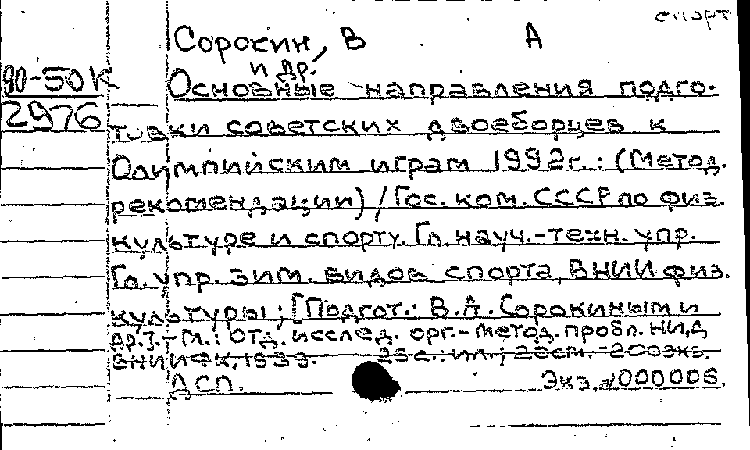 спорт
Сорокин, В А
и др.
90-50К
2976
Основные направления подго-
товки советских двоеборцев к
Олимпийским играм 1992г.: (Метод.
рекомендации) / Гос. ком. СССР по физ.
культуре и спорту. Гл. науч.-техн. упр.
Гл. упр. зим. видов спорта, ВНИИ физ.
культуры; [Подгот.: В.А. Сорокиным и
др.]. - М.: Отд. исслед. орг.-метод. пробл. НИД
ВНИИФК, 25с.: ил.; 20см. - 200экз.
ДСП. Экз. №000006.